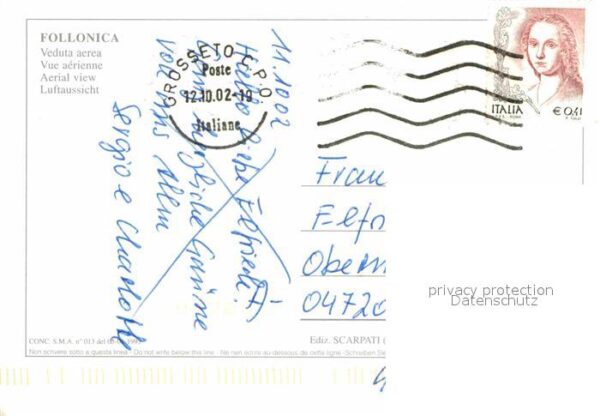 FOLLONICA
Veduta aerea
Vue aérienne
Aerial view
Luftaussicht
GROSSETO C.P.O.
Poste
12.10.02-19
Italiane
ITALIA
€ 0,41
11.10.02
liebe Elfriede
herzliche
von uns allen
Sergio e
Fran
Elf
Oberm
04720
privacy protection
Datenschutz
CONC. S.M.A. n° 013 del
Ediz. SCARPATI (
Non scrivere sotto a questa linea - Do not write below this line - Ne rien écrire au-dessous de cette ligne - Schreiben Sie